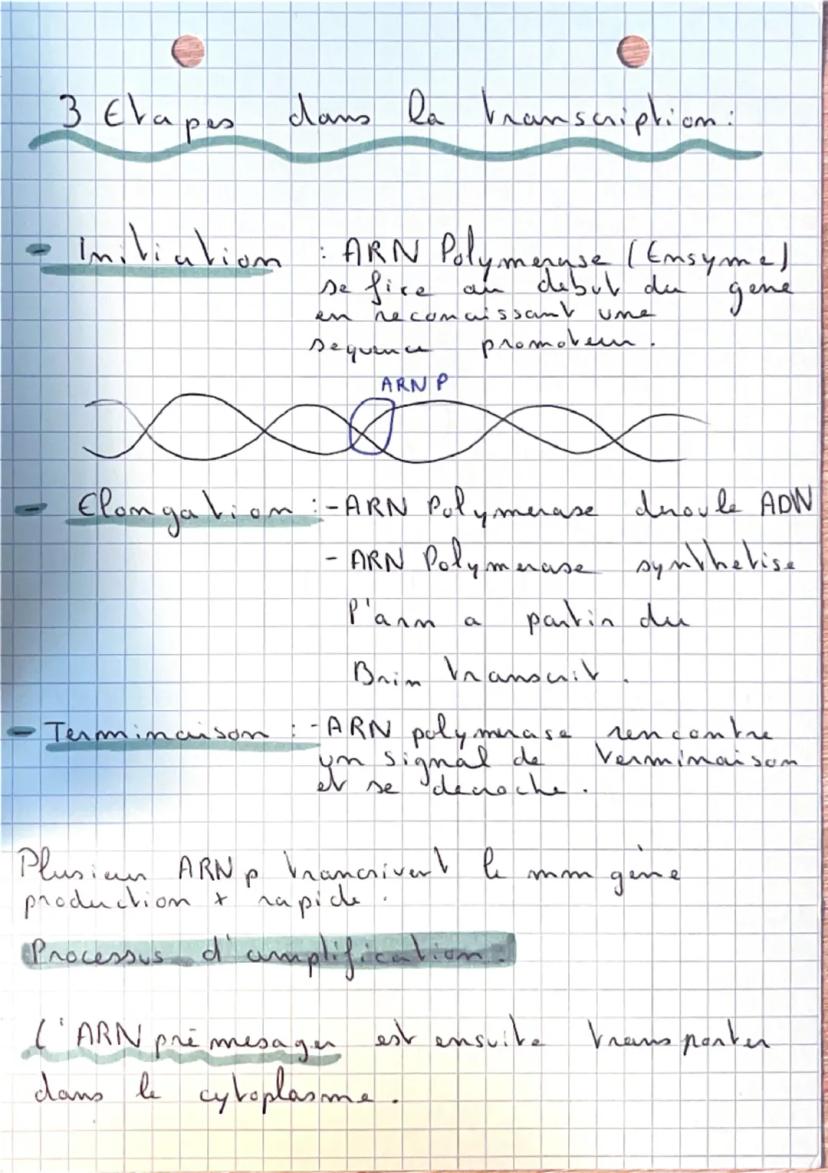 3 Etapes dans la transcription :
- Initiation : ARN Polymerase (Ensyme)
se fixe au debut du gene
en reconaissant une
sequence promoteur.
ARN P
- Elongation : - ARN Polymerase deroule ADN
- ARN Polymerase synthetise
l'arn a partir du
Brin transcrit.
- Terminaison : - ARN polymerase rencontre
un signal de terminaison
et se decroche.
Plusieur ARN p trancrivent le mm gène
production + rapide.
Processus d'amplification.
l'ARN pré mesager est ensuite transporter
dans le cytoplasme.